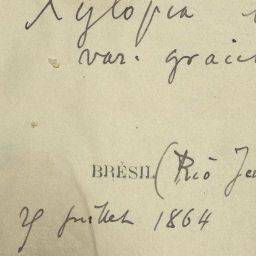 Xylopia
var. graci
BRÉSIL (Rio Ja
25 juillet 1864